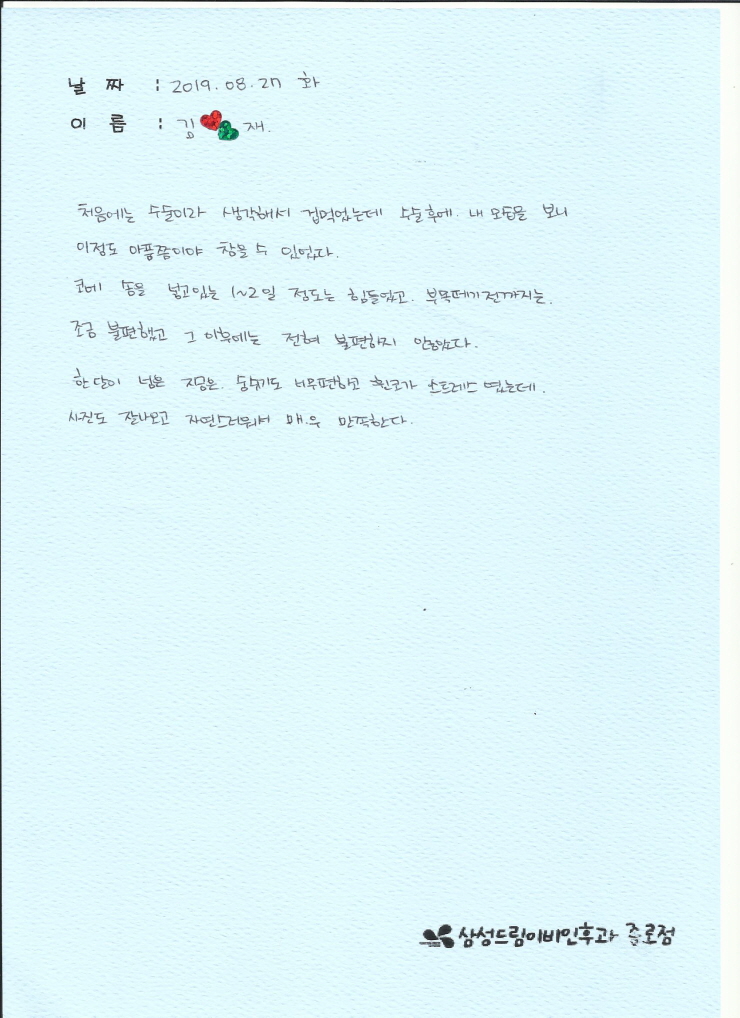 날 짜 : 2019. 08. 27 화
이 름 : 김 재.
처음에는 수술이라 생각해서 겁먹었는데 수술후에. 내 모습을 보니
이정도 아픔쯤이야 참을 수 있었다.
코에 솜을 넣고있는 1~2일 정도는 힘들었고. 부목떼기전까지는.
조금 불편했고 그 이후에는 전혀 불편하지 않았다.
한달이 넘은 지금은. 숨쉬기도 너무편하고 휜코가 스트레스 였는데.
사진도 잘나오고 자연스러워서 매우 만족한다.
삼성드림이비인후과 종로점